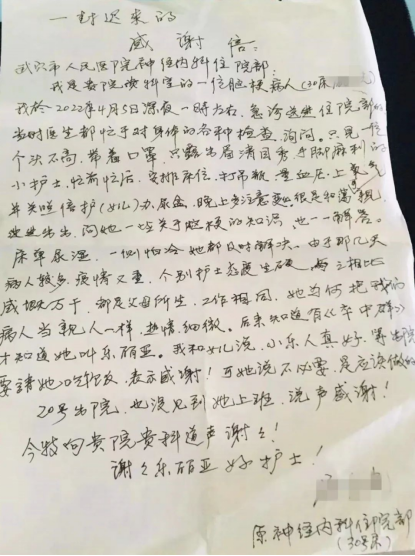 一封迟来的
感谢信:
武汉市人民医院神经内科住院部:
我是贵院该科室的一位脑梗病人(30床
我於2022年4月5日深夜一时左右,急诊送进住院部的
当时医生都忙于对身体的各种检查,询问。只见一位
个头不高,带着口罩,只露出眉清目秀,手脚麻利的
小护士,忙前忙后,安排床位,打吊瓶,量血压,上氧气
并关照陪护(女儿)办尿盆,晚上多注意 很是和蔼可親
问她一些关于脑梗的知识,也一一解答。
床单尿湿,一侧怕冷她都及时解决。由于那几天
病人较多,疫情又重,个别护士态度生硬,与之相比
感慨万千,都是父母所生,工作相同,她为何把我们
病人当親人一样,热情细微。后来知道有
才知道她叫乐丽亚。我和女儿说,小乐人真好,等出院
要请她吃顿饭,表示感谢!可她说不必要,是应该做的
20号出院,也没见到她上班,说声感谢!
今特向贵院贵科道声谢谢!
谢谢乐丽亚好护士!
原神经内科住院部
(30号床)